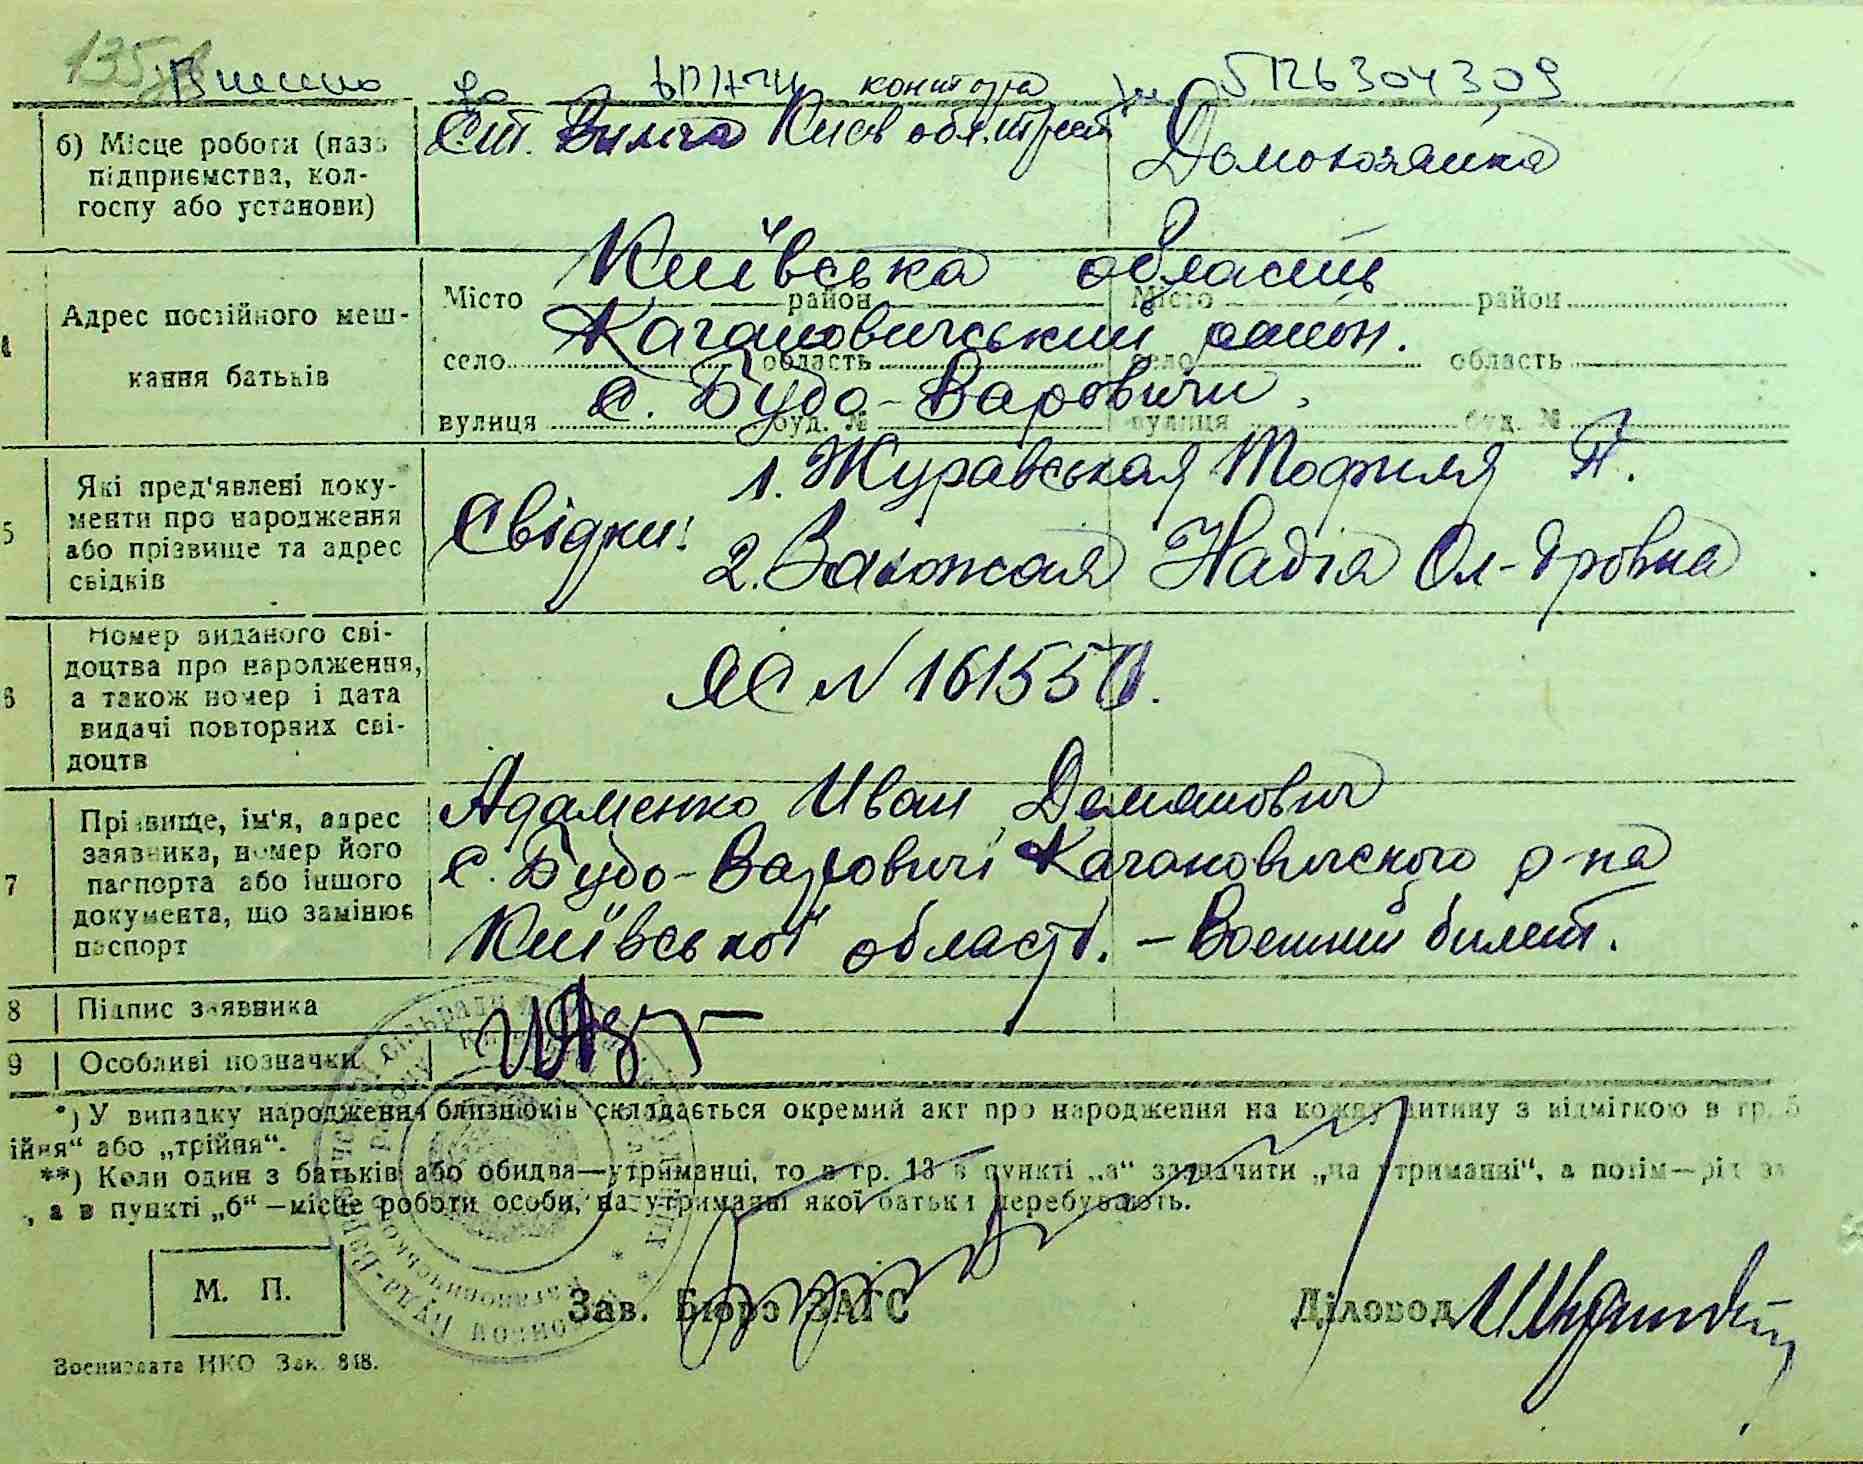 135
Внесено до контора 5126304309
б) Місце роботи (назв підприємства, кол-госпу або установи)
Ст. Вильча Киев обл.
Домохозяйка
4
Адрес постійного меш-
кання батьків
Місто район Місто район
село область село область
вулиця буд. № вулиця буд. №
Київська область
Кагановичський район.
с. Будо-Варовичи
5
Які пред'явлені доку-
менти про народження
або прізвище та адрес
свідків
Свідки:
1. Журавськая Тофиля П.
2. Надія Ол-дровна
6
Номер виданого сві-
доцтва про народження,
а також номер і дата
видачі повторних сві-
доцтв
ЯС N 161550.
7
Прізвище, ім'я, адрес
заявника, номер його
паспорта або іншого
документа, що замінює
паспорт
Адаменко Иван Демянович
с. Будо-Варовичі Кагановичского р-на
Київської області. – Военний билет.
8 Підпис заявника
9 Особливі позначки
*) У випадку народження близнюків складається окремий акт про народження на кожну дитину з відміткою в гр. 5
ійня“ або „трійня“.
**) Коли один з батьків або обидва—утриманці, то в гр. 13 в пункті „а“ зазначити „на утриманні“, а потім—рід за
, а в пункті „б“ —місце роботи особи, на утриманні якої батьки перебувають.
М. П.
Зав. Бюро ЗАГС
Діловод
Воениздата НКО Зак. 848.